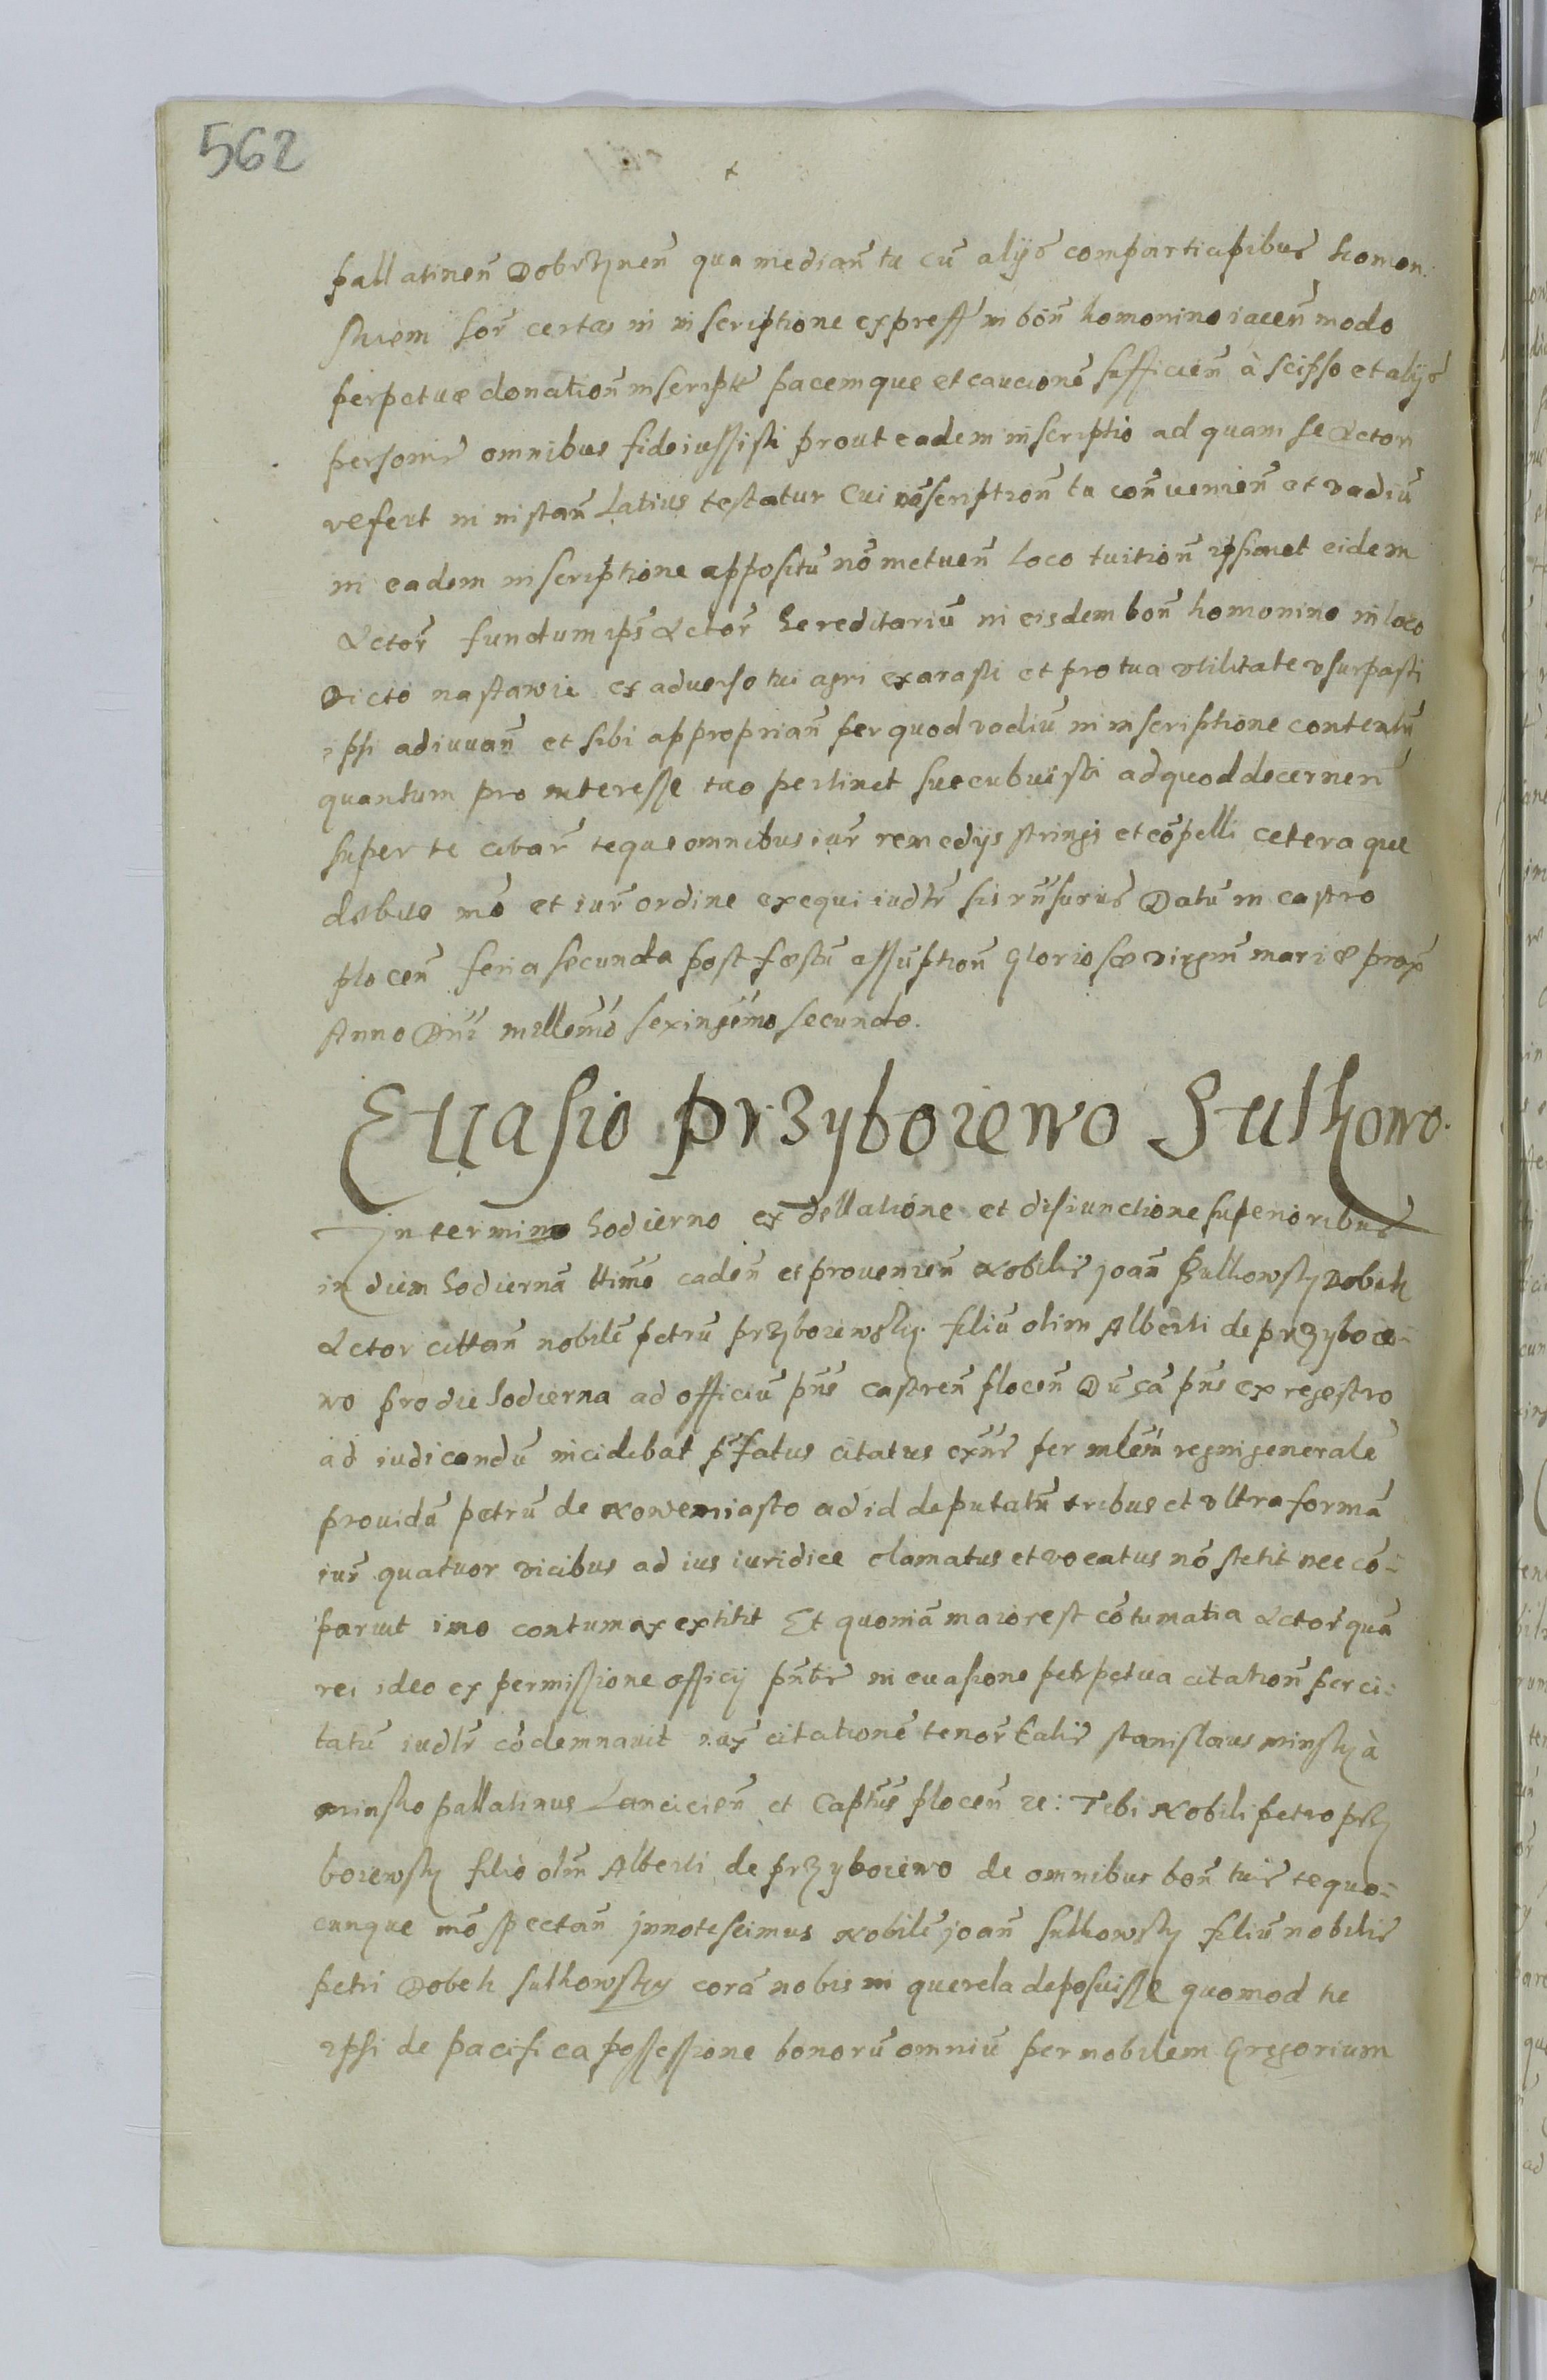 562
pallatinen̄ Dobrzynen̄ qua median̄ tu cū alijs compărticipibus homon.
skiem hor̄ certas in inscriptione express̄ in bon̄ homonino iacen̄ modo
perpetuæ donation̄ inscript̄ pacemque et caucionē sufficien̄ à seipso et alijs
personis omnibus fideiussisti prout eadem inscriptio ad quam se Actor
refert in instan̄ Latius testatur Cui inscription̄ tu con̄uenien̄ et vadiū
in eadem inscriptione appositū nō metuen̄ loco tuition̄ ipsimet eidem
Actor̄ fundum ips̄ Actor̄ hereditariū in eisdem bon̄ homonino in loco
dicto nastawie ex aduerso tui agri exarasti et pro tua vtilitate vsurpasti
ipsi adiuuan̄ et sibi approprian̄ per quod vadiū in inscriptione contentū
quantum pro interesse tuo pertinet succubuisti ad quod decernen̄
super te citar̄ teque omnibus iur̄ remedijs stringi et cōpelli cetera que
debito mō et iur̄ ordine exequi iudtr̄ sis rn̄surus Datū in castro
plocen̄ feria secunda post festū assūption̄ Gloriosæ virgin̄ mariæ prox̄
Anno Dn̄i millem̄o sexingēmo secundo.
Euasio przyboiewo Sulkowo.
In termino hodierno ex dellatione et disiunctione superioribus
in diem hodiernā ttimē caden̄ et prouenien̄ Nobilis joan̄ Sulkowsky Dobek
Actor cittan̄ nobilē petrū przyboiewsky filiū olim Alberti de przyboie-
wo pro die hodierna ad officiū pn̄s castren̄ plocen̄ Dū cā pn̄s ex regestro
ad iudicandū incidebat p̄fatus citatus exn̄s per mlēm regni generalē
prouidū petrū de Nowemiasto ad id deputatū tribus et vltra formā
iur̄ quatuor vicibus ad ius iuridice clamatus et vocatus nō stetit nec cō-
paruit imo contumax extitit Et quoniā maior est cōtumatia Actor̄ quā
rei ideo ex permissione officij pn̄tis in euasione perpetua citation̄ per ci-
tatū iudtr̄ cōdemnauit cuius citationē tenor̄ talis stanislaus minsky à
minsko pallatinus Lancicien̄ et Captn̄s plocen̄ zc: Tibi Nobili petro prz̄y
boiewsky filio olim Alberti de przyboiewo de omnibus bon̄ tuis te quo-
cunque mō spectan̄ jnnotescimus Nobilē joan̄ sulkowsky filiū nobilis
petri Dobek sulkowsky corā nobis in querela deposuisse quomod tu
ipsi de pacifica possessione bonorū omniū per nobilem Gregorium